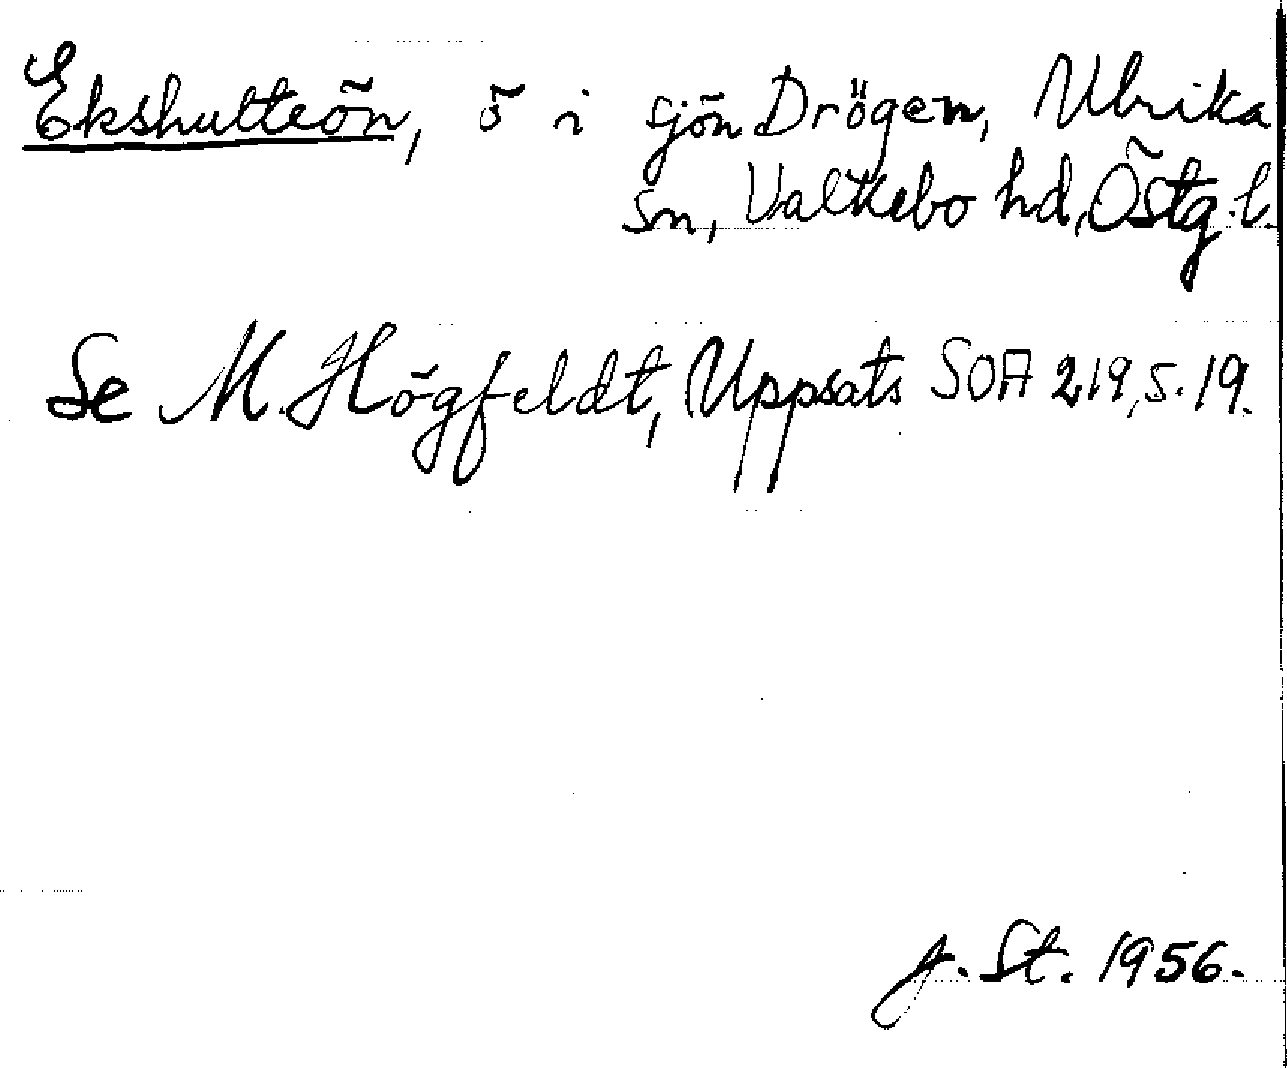 Ekshulteön, ö i sjön Drögen, Ulrika
sn, Valkebo hd, Östg. l.
Se M. Högfeldt, Uppsats SOA 219, s. 19.
J. St. 1956.